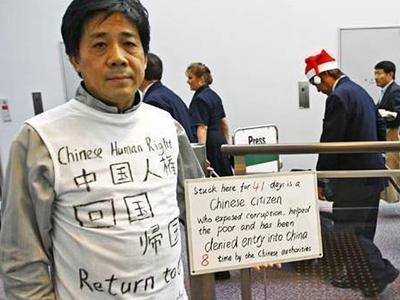 Chinese Human Right
中国人權
回国
帰国
Return to
Press
Stuck here for 41 days is a
Chinese Citizen
who exposed corruption, helped
the poor and has been
denied entry into China
8 time by the Chinese authorities